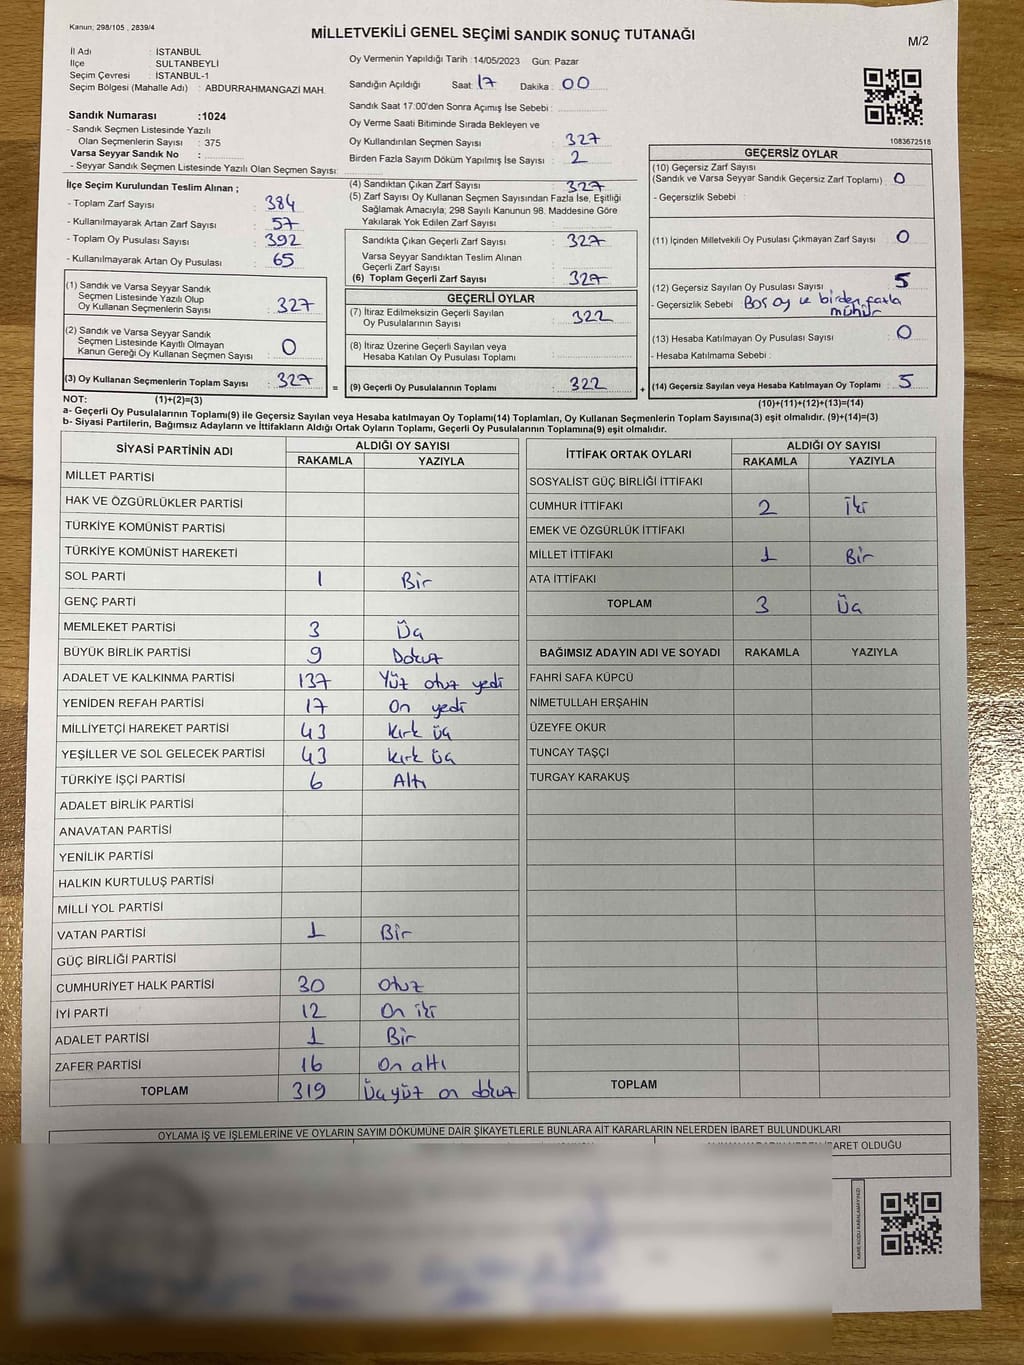 Kanun; 298/105 , 2839/4
MİLLETVEKİLİ GENEL SEÇİMİ SANDIK SONUÇ TUTANAĞI
M/2
İl Adı : İSTANBUL
İlçe : SULTANBEYLİ
Seçim Çevresi : İSTANBUL-1
Seçim Bölgesi (Mahalle Adı) : ABDURRAHMANGAZİ MAH.
Oy Vermenin Yapıldığı Tarih :14/05/2023 Gün: Pazar
Sandığın Açıldığı Saat: 17 Dakika : 00
Sandık Saat 17:00'den Sonra Açımış İse Sebebi :
Oy Verme Saati Bitiminde Sırada Bekleyen ve
Oy Kullandırılan Seçmen Sayısı : 327
Birden Fazla Sayım Döküm Yapılmış İse Sayısı : 2
Sandık Numarası :1024
- Sandık Seçmen Listesinde Yazılı
Olan Seçmenlerin Sayısı : 375
Varsa Seyyar Sandık No :
- Seyyar Sandık Seçmen Listesinde Yazılı Olan Seçmen Sayısı:
1083672518
İlçe Seçim Kurulundan Teslim Alınan ;
- Toplam Zarf Sayısı : 384
- Kullanılmayarak Artan Zarf Sayısı : 57
- Toplam Oy Pusulası Sayısı : 392
- Kullanılmayarak Artan Oy Pusulası : 65
(1) Sandık ve Varsa Seyyar Sandık
Seçmen Listesinde Yazılı Olup
Oy Kullanan Seçmenlerin Sayısı : 327
(2) Sandık ve Varsa Seyyar Sandık
Seçmen Listesinde Kayıtlı Olmayan
Kanun Gereği Oy Kullanan Seçmen Sayısı : 0
(3) Oy Kullanan Seçmenlerin Toplam Sayısı : 327
(4) Sandıktan Çıkan Zarf Sayısı : 327
(5) Zarf Sayısı Oy Kullanan Seçmen Sayısından Fazla İse, Eşitliği
Sağlamak Amacıyla; 298 Sayılı Kanunun 98. Maddesine Göre
Yakılarak Yok Edilen Zarf Sayısı :
Sandıkta Çıkan Geçerli Zarf Sayısı : 327
Varsa Seyyar Sandıktan Teslim Alınan
Geçerli Zarf Sayısı :
(6) Toplam Geçerli Zarf Sayısı : 327
GEÇERLİ OYLAR
(7) İtiraz Edilmeksizin Geçerli Sayılan
Oy Pusulalarının Sayısı : 322
(8) İtiraz Üzerine Geçerli Sayılan veya
Hesaba Katılan Oy Pusulası Toplamı :
= (9) Geçerli Oy Pusulalarının Toplamı : 322
GEÇERSİZ OYLAR
(10) Geçersiz Zarf Sayısı
(Sandık ve Varsa Seyyar Sandık Geçersiz Zarf Toplamı) : 0
- Geçersizlik Sebebi :
(11) İçinden Milletvekili Oy Pusulası Çıkmayan Zarf Sayısı : 0
(12) Geçersiz Sayılan Oy Pusulası Sayısı : 5
- Geçersizlik Sebebi : Boş oy ve birden fazla
mühür
(13) Hesaba Katılmayan Oy Pusulası Sayısı : 0
- Hesaba Katılmama Sebebi :
+ (14) Geçersiz Sayılan veya Hesaba Katılmayan Oy Toplamı : 5
NOT: (1)+(2)=(3)
(10)+(11)+(12)+(13)=(14)
a- Geçerli Oy Pusulalarının Toplamı(9) ile Geçersiz Sayılan veya Hesaba katılmayan Oy Toplamı(14) Toplamları, Oy Kullanan Seçmenlerin Toplam Sayısına(3) eşit olmalıdır. (9)+(14)=(3)
b- Siyasi Partilerin, Bağımsız Adayların ve İttifakların Aldığı Ortak Oyların Toplamı, Geçerli Oy Pusulalarının Toplamına(9) eşit olmalıdır.
SİYASİ PARTİNİN ADI ALDIĞI OY SAYISI
RAKAMLA YAZIYLA
MİLLET PARTİSİ
HAK VE ÖZGÜRLÜKLER PARTİSİ
TÜRKİYE KOMÜNİST PARTİSİ
TÜRKİYE KOMÜNİST HAREKETİ
SOL PARTİ 1 Bir
GENÇ PARTİ
MEMLEKET PARTİSİ 3 Üç
BÜYÜK BİRLİK PARTİSİ 9 Dokuz
ADALET VE KALKINMA PARTİSİ 137 Yüz otuz yedi
YENİDEN REFAH PARTİSİ 17 On yedi
MİLLİYETÇİ HAREKET PARTİSİ 43 Kırk üç
YEŞİLLER VE SOL GELECEK PARTİSİ 43 Kırk üç
TÜRKİYE İŞÇİ PARTİSİ 6 Altı
ADALET BİRLİK PARTİSİ
ANAVATAN PARTİSİ
YENİLİK PARTİSİ
HALKIN KURTULUŞ PARTİSİ
MİLLİ YOL PARTİSİ
VATAN PARTİSİ 1 Bir
GÜÇ BİRLİĞİ PARTİSİ
CUMHURİYET HALK PARTİSİ 30 Otuz
İYİ PARTİ 12 On iki
ADALET PARTİSİ 1 Bir
ZAFER PARTİSİ 16 On altı
TOPLAM 319 Üçyüz on dokuz
İTTİFAK ORTAK OYLARI ALDIĞI OY SAYISI
RAKAMLA YAZIYLA
SOSYALİST GÜÇ BİRLİĞİ İTTİFAKI
CUMHUR İTTİFAKI 2 İki
EMEK VE ÖZGÜRLÜK İTTİFAKI
MİLLET İTTİFAKI 1 Bir
ATA İTTİFAKI
TOPLAM 3 Üç
BAĞIMSIZ ADAYIN ADI VE SOYADI RAKAMLA YAZIYLA
FAHRİ SAFA KÜPCÜ
NİMETULLAH ERŞAHİN
ÜZEYFE OKUR
TUNCAY TAŞÇI
TURGAY KARAKUŞ
TOPLAM
OYLAMA İŞ VE İŞLEMLERİNE VE OYLARIN SAYIM DÖKÜMÜNE DAİR ŞİKAYETLERLE BUNLARA AİT KARARLARIN NELERDEN İBARET BULUNDUKLARI
İBARET OLDUĞU
KARE KODU KARALAMAYINIZ!